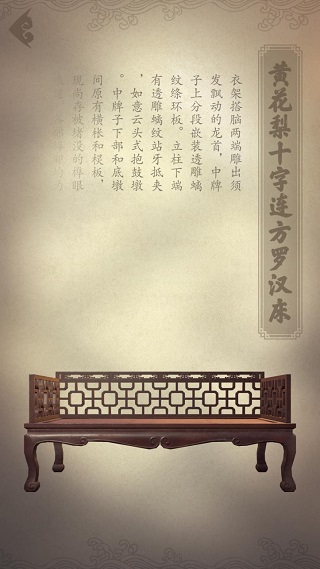 黄花梨十字连方罗汉床
衣架搭脑两端雕出须
发飘动的龙首，中牌
子上分段嵌装透雕螭
纹绦环板。立柱下端
有透雕螭纹站牙抵夹
，如意云头式抱鼓墩
。中牌子下部和底墩
间原有横枨和棂板，
现尚存被堵没的榫眼